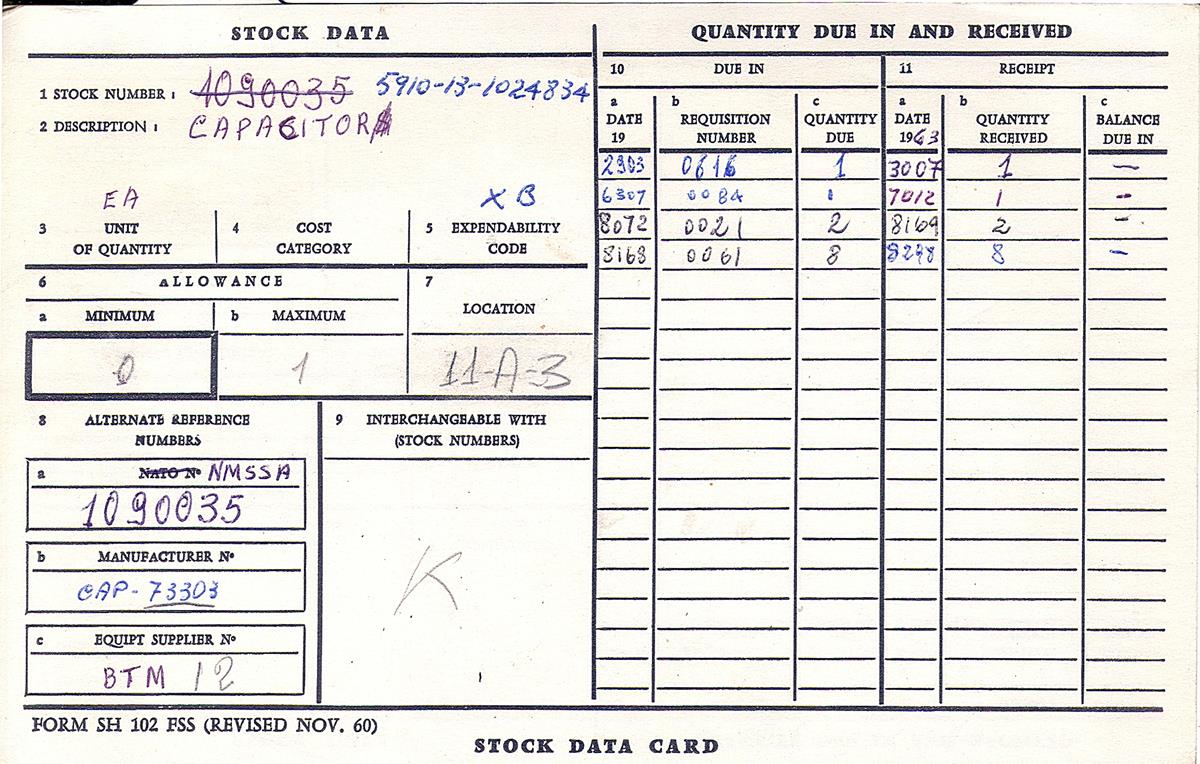 STOCK DATA
1 STOCK NUMBER : 1090035 5910-13-1024834
2 DESCRIPTION : CAPACITOR
EA XB
3 UNIT OF QUANTITY
4 COST CATEGORY
5 EXPENDABILITY CODE
6 ALLOWANCE
a MINIMUM
b MAXIMUM
7 LOCATION
0 1 11-A-3
8 ALTERNATE REFERENCE
NUMBERS
a NATO Nº NMSSA
1090035
b MANUFACTURER Nº
CAP-73303
c EQUIPT SUPPLIER Nº
BTM 12
9 INTERCHANGEABLE WITH
(STOCK NUMBERS)
K
QUANTITY DUE IN AND RECEIVED
10 DUE IN 11 RECEIPT
a DATE 19
b REQUISITION NUMBER
c QUANTITY DUE
a DATE 1963
b QUANTITY RECEIVED
c BALANCE DUE IN
2903 0616 1 3007 1 —
6307 0084 1 7012 1 -
8072 0021 2 8169 2 -
8168 0061 8 8 -
FORM SH 102 FSS (REVISED NOV. 60)
STOCK DATA CARD